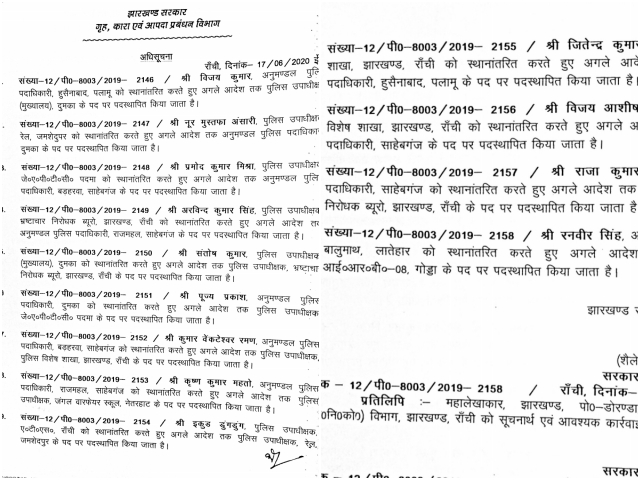 झारखण्ड सरकार
गृह, कारा एवं आपदा प्रबंधन विभाग
अधिसूचना
राँची, दिनांक- 17/06/2020 ई
संख्या-12/पी0-8003/2019- 2146 / श्री विजय कुमार, अनुमण्डल पुलि
पदाधिकारी, हुसैनाबाद, पलामू को स्थानांतरित करते हुए अगले आदेश तक पुलिस उपाधीक्ष
(मुख्यालय), दुमका के पद पर पदस्थापित किया जाता है।
संख्या-12/पी0-8003/2019- 2147 / श्री नूर मुस्तफा अंसारी, पुलिस उपाधीक्षक
रेल, जमशेदपुर को स्थानांतरित करते हुए अगले आदेश तक अनुमण्डल पुलिस पदाधिकार
दुमका के पद पर पदस्थापित किया जाता है।
संख्या-12/पी0-8003/2019- 2148 / श्री प्रमोद कुमार मिश्रा, पुलिस उपाधीक्षक
जे०ए०पी०टी०सी० को स्थानांतरित करते हुए अगले आदेश तक अनुमण्डल पुलिस
पदाधिकारी, बडहरवा, साहेबगंज के पद पर पदस्थापित किया जाता है।
संख्या-12/पी0-8003/2019- 2149 / श्री अरविन्द कुमार सिंह, पुलिस उपाधीक्षक
भ्रष्टाचार निरोधक ब्यूरो, झारखण्ड, राँची को स्थानांतरित करते हुए अगले आदेश तक
अनुमण्डल पुलिस पदाधिकारी, राजमहल, साहेबगंज के पद पर पदस्थापित किया जाता है।
संख्या-12/पी0-8003/2019- 2150 / श्री संतोष कुमार, पुलिस उपाधीक्षक
(मुख्यालय), दुमका को स्थानांतरित करते हुए अगले आदेश तक पुलिस उपाधीक्षक, भ्रष्टाचा
निरोधक ब्यूरो, झारखण्ड, राँची के पद पर पदस्थापित किया जाता है।
संख्या-12/पी0-8003/2019- 2151 / श्री पूज्य प्रकाश, अनुमण्डल पुलिस
पदाधिकारी, दुमका को स्थानांतरित करते हुए अगले आदेश तक पुलिस उपाधीक्षक
जे०ए०पी०टी०सी० पदमा के पद पर पदस्थापित किया जाता है।
7. संख्या-12/पी0-8003/2019- 2152 / श्री कुमार वेंकटेश्वर रमण, अनुमण्डल पुलिस
पदाधिकारी, बडहरवा, साहेबगंज को स्थानांतरित करते हुए अगले आदेश तक पुलिस उपाधीक्षक,
पुलिस विशेष शाखा, झारखण्ड, राँची के पद पर पदस्थापित किया जाता है।
संख्या-12/पी0-8003/2019- 2153 / श्री कृष्ण कुमार महतो, अनुमण्डल पुलिस
पदाधिकारी, राजमहल, साहेबगंज को स्थानांतरित करते हुए अगले आदेश तक पुलिस
उपाधीक्षक, जंगल वारफेयर स्कूल, नेतरहाट के पद पर पदस्थापित किया जाता है।
संख्या-12/पी0-8003/2019- 2154 / श्री इकुड डुंगडुंग, पुलिस उपाधीक्षक,
ए०टी०एस०, राँची को स्थानांतरित करते हुए अगले आदेश तक पुलिस उपाधीक्षक, रेल,
जमशेदपुर के पद पर पदस्थापित किया जाता है।
संख्या-12/पी0-8003/2019- 2155 / श्री जितेन्द्र कुमार
शाखा, झारखण्ड, राँची को स्थानांतरित करते हुए अगले आदे
पदाधिकारी, हुसैनाबाद, पलामू के पद पर पदस्थापित किया जाता है।
संख्या-12/पी0-8003/2019- 2156 / श्री विजय आशीष
विशेष शाखा, झारखण्ड, राँची को स्थानांतरित करते हुए अगले अ
पदाधिकारी, साहेबगंज के पद पर पदस्थापित किया जाता है।
संख्या-12/पी0-8003/2019- 2157 / श्री राजा कुमार
पदाधिकारी, साहेबगंज को स्थानांतरित करते हुए अगले आदेश तक
निरोधक ब्यूरो, झारखण्ड, राँची के पद पर पदस्थापित किया जाता है
संख्या-12/पी0-8003/2019- 2158 / श्री रनवीर सिंह, अ
बालुमाथ, लातेहार को स्थानांतरित करते हुए अगले आदेश
आई०आर०बी०-08, गोड्डा के पद पर पदस्थापित किया जाता है।
झारखण्ड स
(शैले
सरकार
क - 12/पी0-8003/2019- 2158 / राँची, दिनांक-
प्रतिलिपि :- महालेखाकार, झारखण्ड, पो0-डोरण्डा
0नि0को0) विभाग, झारखण्ड, राँची को सूचनार्थ एवं आवश्यक कार्रवाई
सरकार